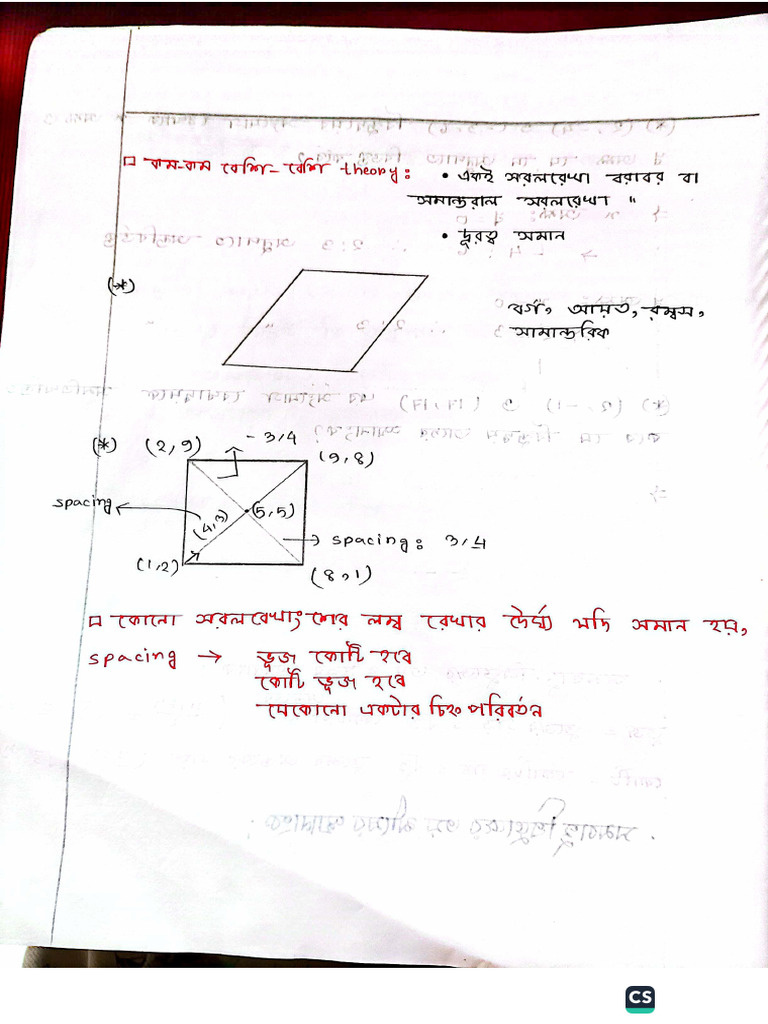 □ কম-কম বেশি-বেশি theory: • একই সরলরেখা বরাবর বা
সমান্তরাল সরলরেখা "
• দূরত্ব সমান
(*)
বর্গ, আয়ত, রম্বস,
সামান্তরিক
(*) (2,9) -3,4 (9,8)
spacing (4,3) (5,5)
spacing: 3,4
(1,2) (8,1)
□ কোনো সরলরেখাংশের লম্ব রেখার দৈর্ঘ্য যদি সমান হয়,
spacing → ভূজ কোটি হবে
কোটি ভূজ হবে
যেকোনো একটার চিহ্ন পরিবর্তন
CS